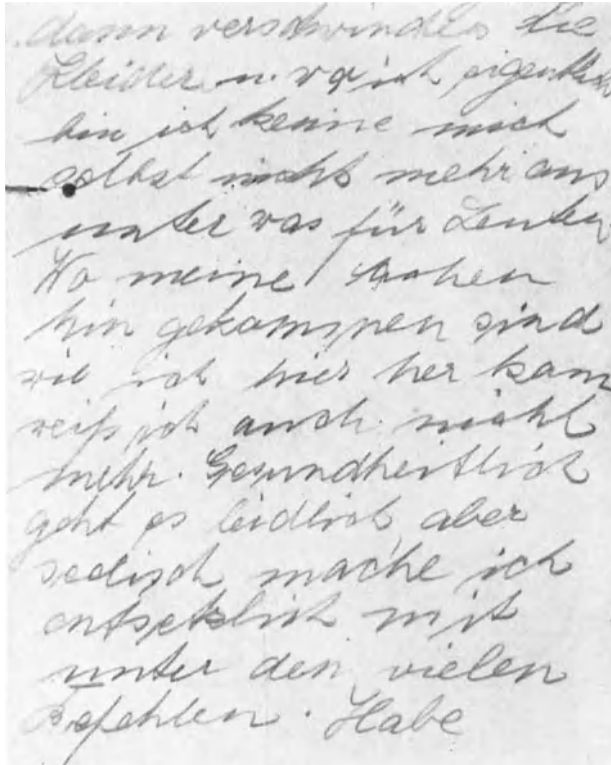 dann verschwinden die
Kleider u. wo ich eigentlich
bin ich kenne mich
selbst nicht mehr aus
unter was für Leuten
Wo meine Sachen
hin gekommen sind
wie ich hier her kam
weiß ich auch nicht
mehr. Gesundheitlich
geht es leidlich, aber
seelisch mache ich
entsetzlich mit
unter den vielen
Befehlen. Habe